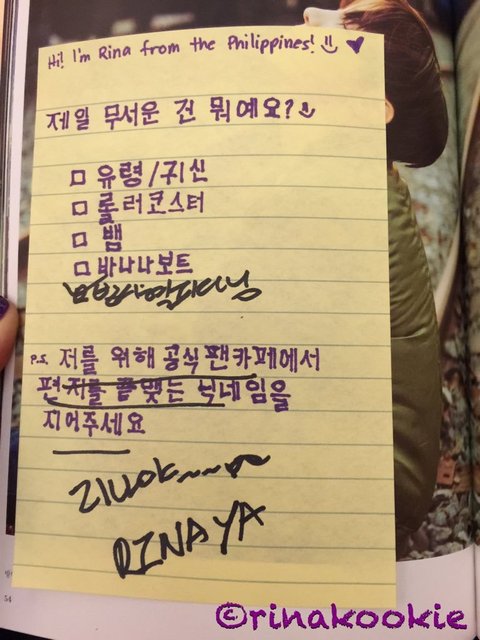 Hi! I'm Rina from the Philippines!
제일 무서운 건 뭐예요?
□ 유령/귀신
□ 롤러코스터
□ 뱀
□ 바나나보트
P.S. 저를 위해 공식 팬카페에서
저를 끝맺는 닉네임을
지어주세요
리나야~~~
RINAYA
54
©rinakookie